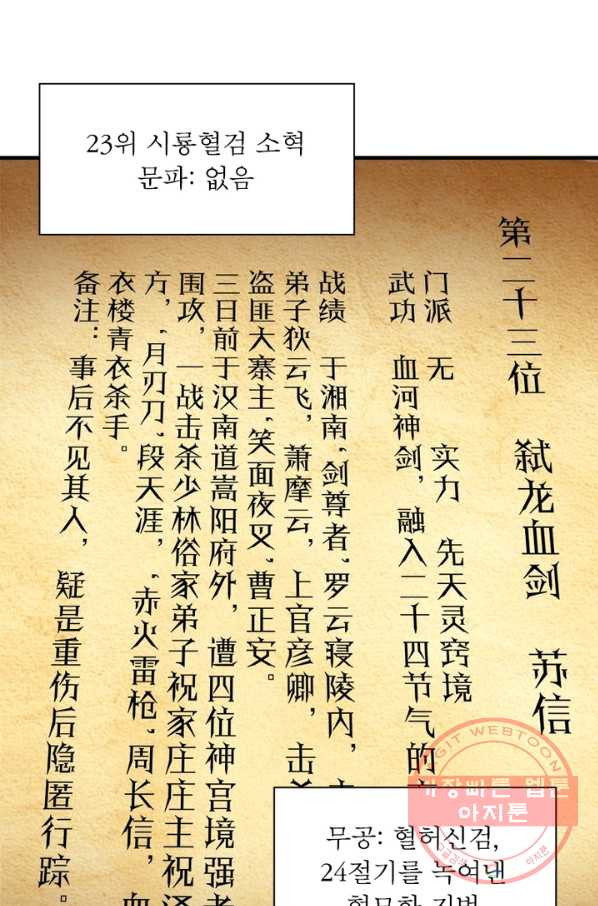 23위 시룡혈검 소혁
문파: 없음
第二十三位 弑龙血剑 苏信
门派 无 实力 先天灵窍境
武功 血河神剑，融入二十四节气的
战绩 于湘南，剑尊者，罗云寝陵内，
弟子狄云飞，萧摩云，上官彦卿，击
盗匪大寨主，笑面夜叉，曹正安。
三日前于汉南道嵩阳府外，遭四位神宫境强者
围攻，一战击杀少林俗家弟子祝家庄庄主祝泽
方，月刃刀，段天涯，赤火雷枪，周长信，血
衣楼青衣杀手。
备注：事后不见其人，疑是重伤后隐匿行踪。
무공: 혈허신검,
24절기를 녹여낸
AGIT WEBTOON
가장빠른 웹툰
아지툰
아지툰